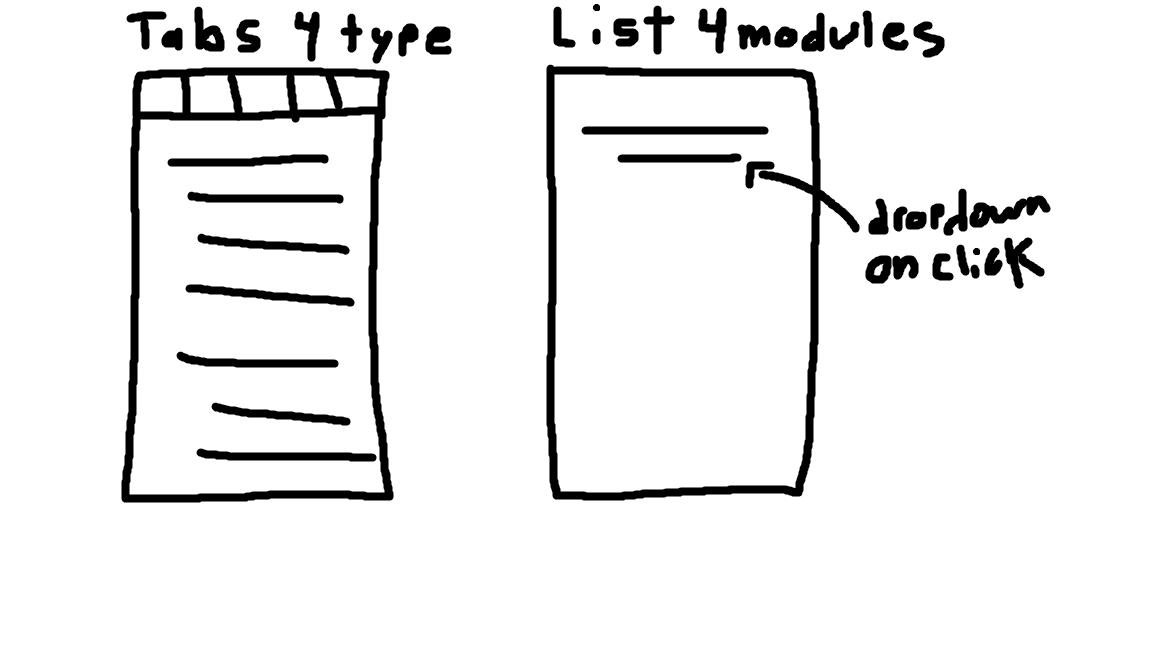 Tabs 4 type
List 4 modules
dropdown
on click